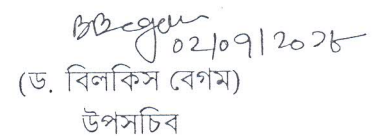 BBegum
02/09/2025
(ড. বিলকিস বেগম)
উপসচিব